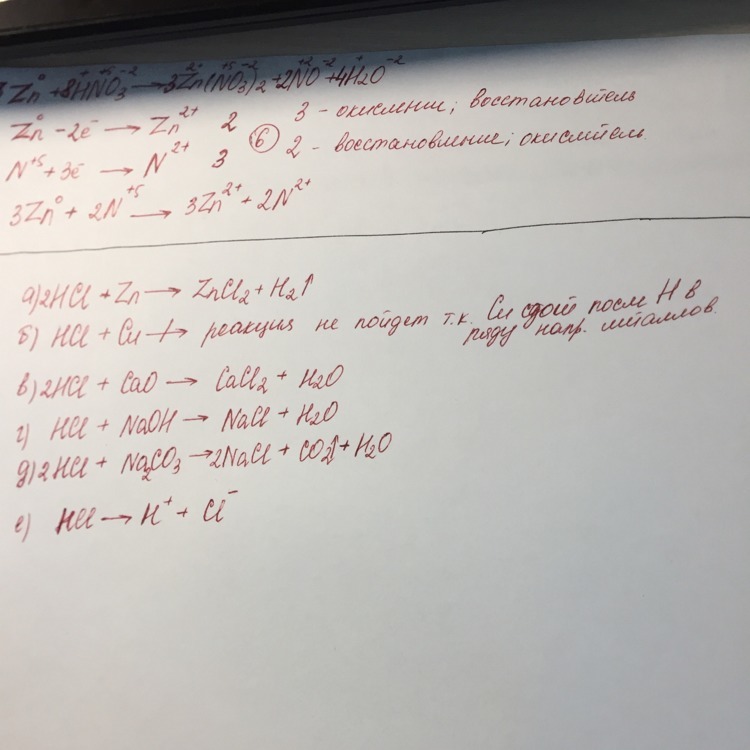 3Zn⁰ + 8H⁺N⁺⁵O₃⁻² → 3Zn²⁺(N⁺⁵O₃⁻²)₂ + 2N⁺²O⁻² + 4H₂⁺O⁻²
Zn⁰ - 2ē → Zn²⁺ 2 6 3 - окисление; восстановитель
N⁺⁵ + 3ē → N²⁺ 3 2 - восстановление; окислитель.
3Zn⁰ + 2N⁺⁵ → 3Zn²⁺ + 2N²⁺
а) 2HCl + Zn → ZnCl₂ + H₂↑
б) HCl + Cu ↛ реакция не пойдет т.к. Cu стоит после H в
ряду напр. металлов.
в) 2HCl + CaO → CaCl₂ + H₂O
г) HCl + NaOH → NaCl + H₂O
д) 2HCl + Na₂CO₃ → 2NaCl + CO₂↑ + H₂O
е) HCl → H⁺ + Cl⁻